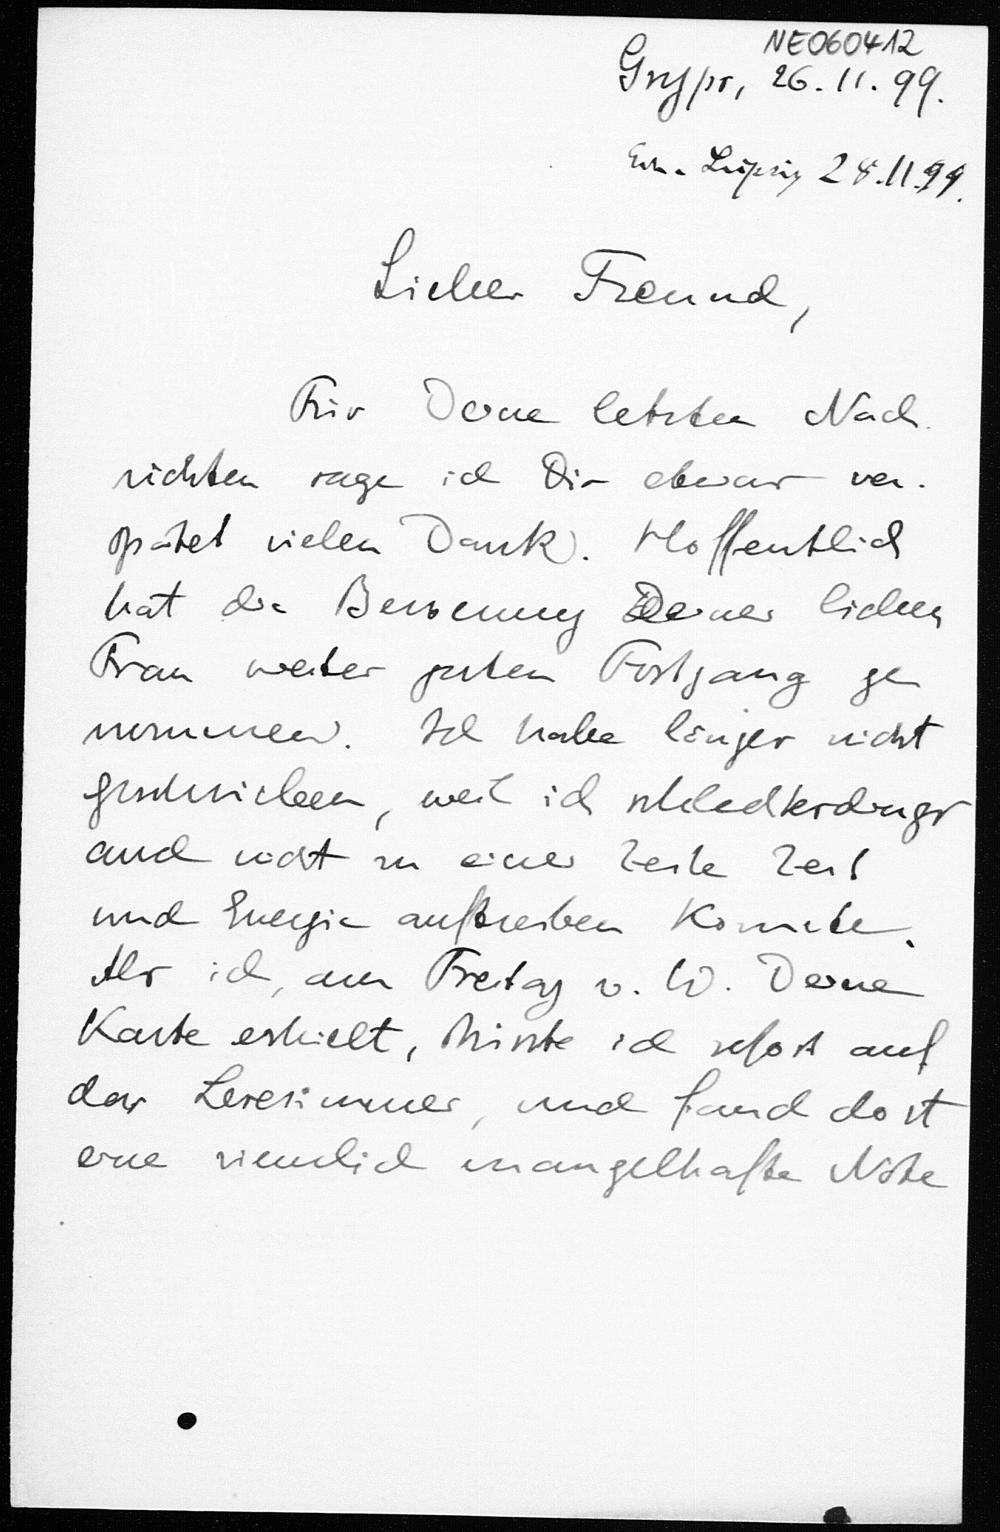 NE060412
Gryps, 26.11.99.
Erh. Leipzig 28.11.99.
Lieber Freund,
Für Deine letzten Nach-
richten sage ich Dir etwas ver-
spätet vielen Dank. Hoffentlich
hat die Besserung Deiner lieben
Frau weiter guten Fortgang ge
nommen. Ich habe länger nicht
geschrieben, weil ich schlechterdings
auch nicht zu einer Zeile Zeit
und Energie auftreiben konnte.
Als ich, am Freitag v. W. Deine
Karte erhielt, stürzte ich sofort auf
das Lesezimmer, und fand dort
eine ziemlich mangelhafte Note